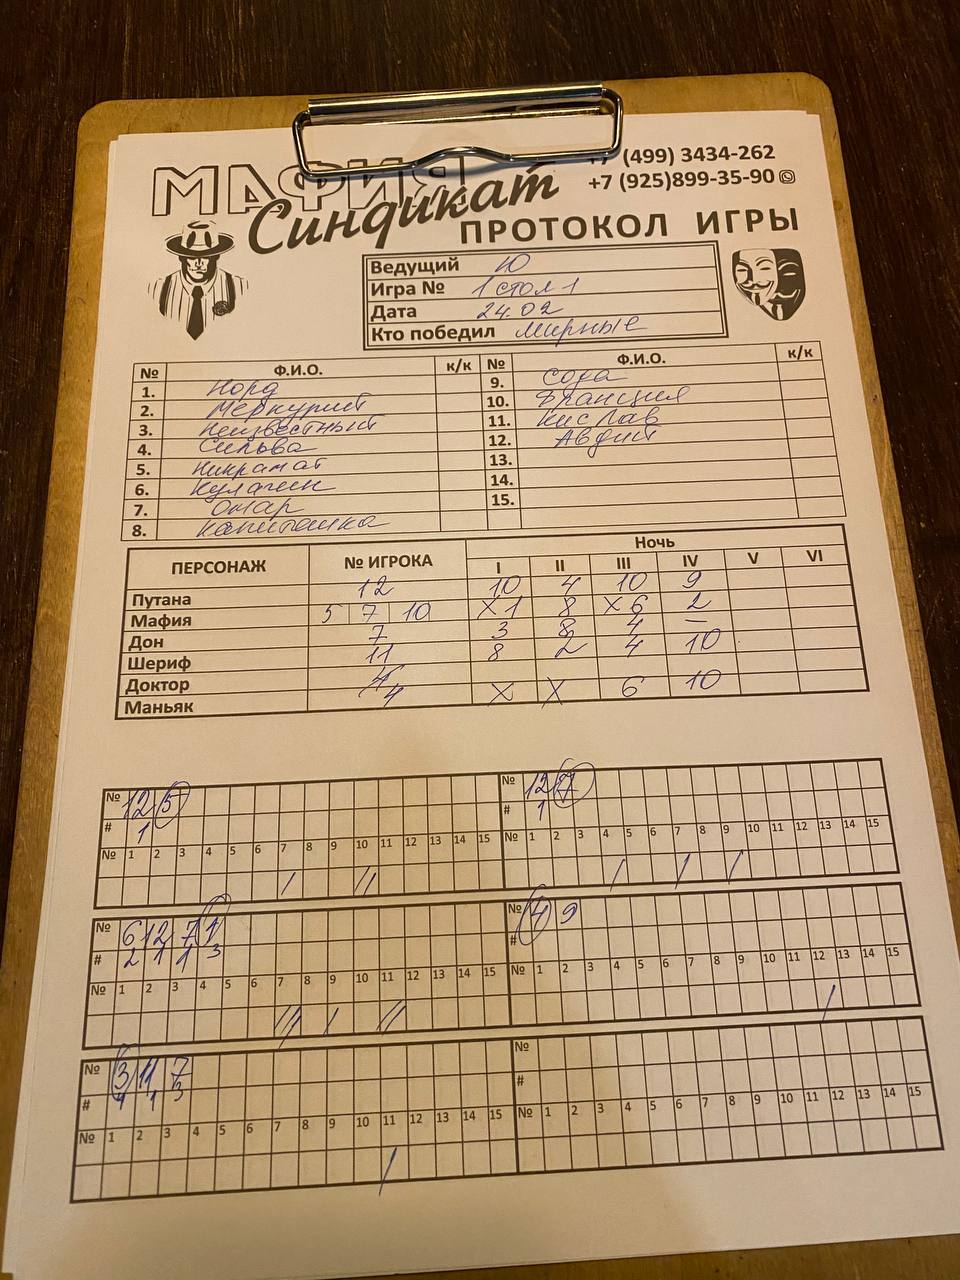 МАФИЯ
Синдикат
+7 (499) 3434-262
+7 (925)899-35-90
ПРОТОКОЛ ИГРЫ
Ведущий Ю
Игра № 1 стол 1
Дата 24.02
Кто победил Мирные
№ Ф.И.О. к/к № Ф.И.О. к/к
1. Норд 9. Соха
2. Меркурий 10. Франция
3. Неизвестный 11. Кислав
4. Сильва 12. Авдий
5. Никромат 13.
6. Кулагин 14.
7. Омар 15.
8. Капитошка
ПЕРСОНАЖ № ИГРОКА Ночь
I II III IV V VI
Путана 12 10 4 10 9
Мафия 5 7 10 X1 8 X6 2
Дон 7 3 8 4 –
Шериф 11 8 2 4 10
Доктор
Маньяк 4 X X 6 10
№ 12 5
# 1
№ 1 2 3 4 5 6 7 8 9 10 11 12 13 14 15
/ //
№ 12 7
# 1
№ 1 2 3 4 5 6 7 8 9 10 11 12 13 14 15
/ / /
№ 6 12 7 1
# 2 1 1 3
№ 1 2 3 4 5 6 7 8 9 10 11 12 13 14 15
/// / //
№ 4 9
#
№ 1 2 3 4 5 6 7 8 9 10 11 12 13 14 15
/
№ 3 11 7
# 4 1 3
№ 1 2 3 4 5 6 7 8 9 10 11 12 13 14 15
/
№
#
№ 1 2 3 4 5 6 7 8 9 10 11 12 13 14 15